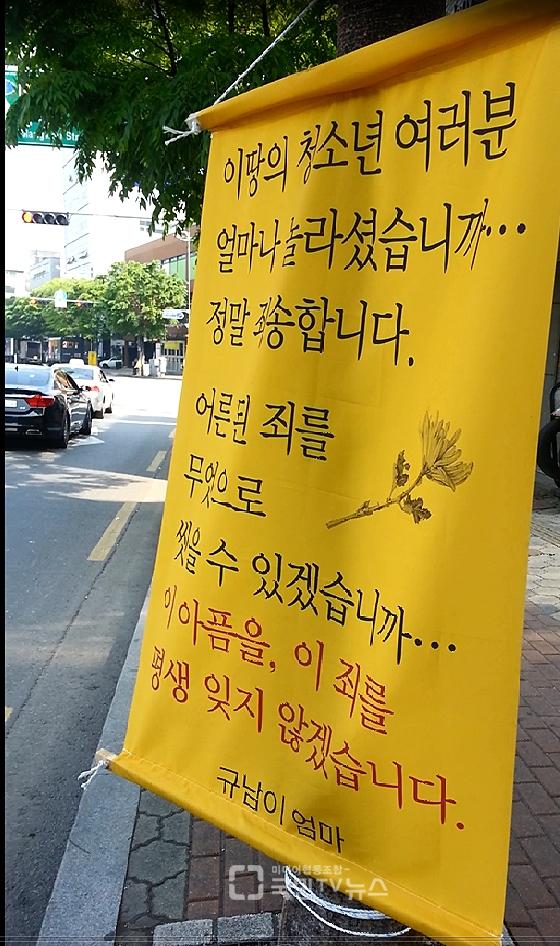 이땅의 청소년 여러분
얼마나 놀라셨습니까…
정말 죄송합니다.
어른된 죄를
무엇으로
씻을 수 있겠습니까…
이 아픔을, 이 죄를
평생 잊지 않겠습니다.
규남이 엄마
미디어협동조합
국민TV뉴스